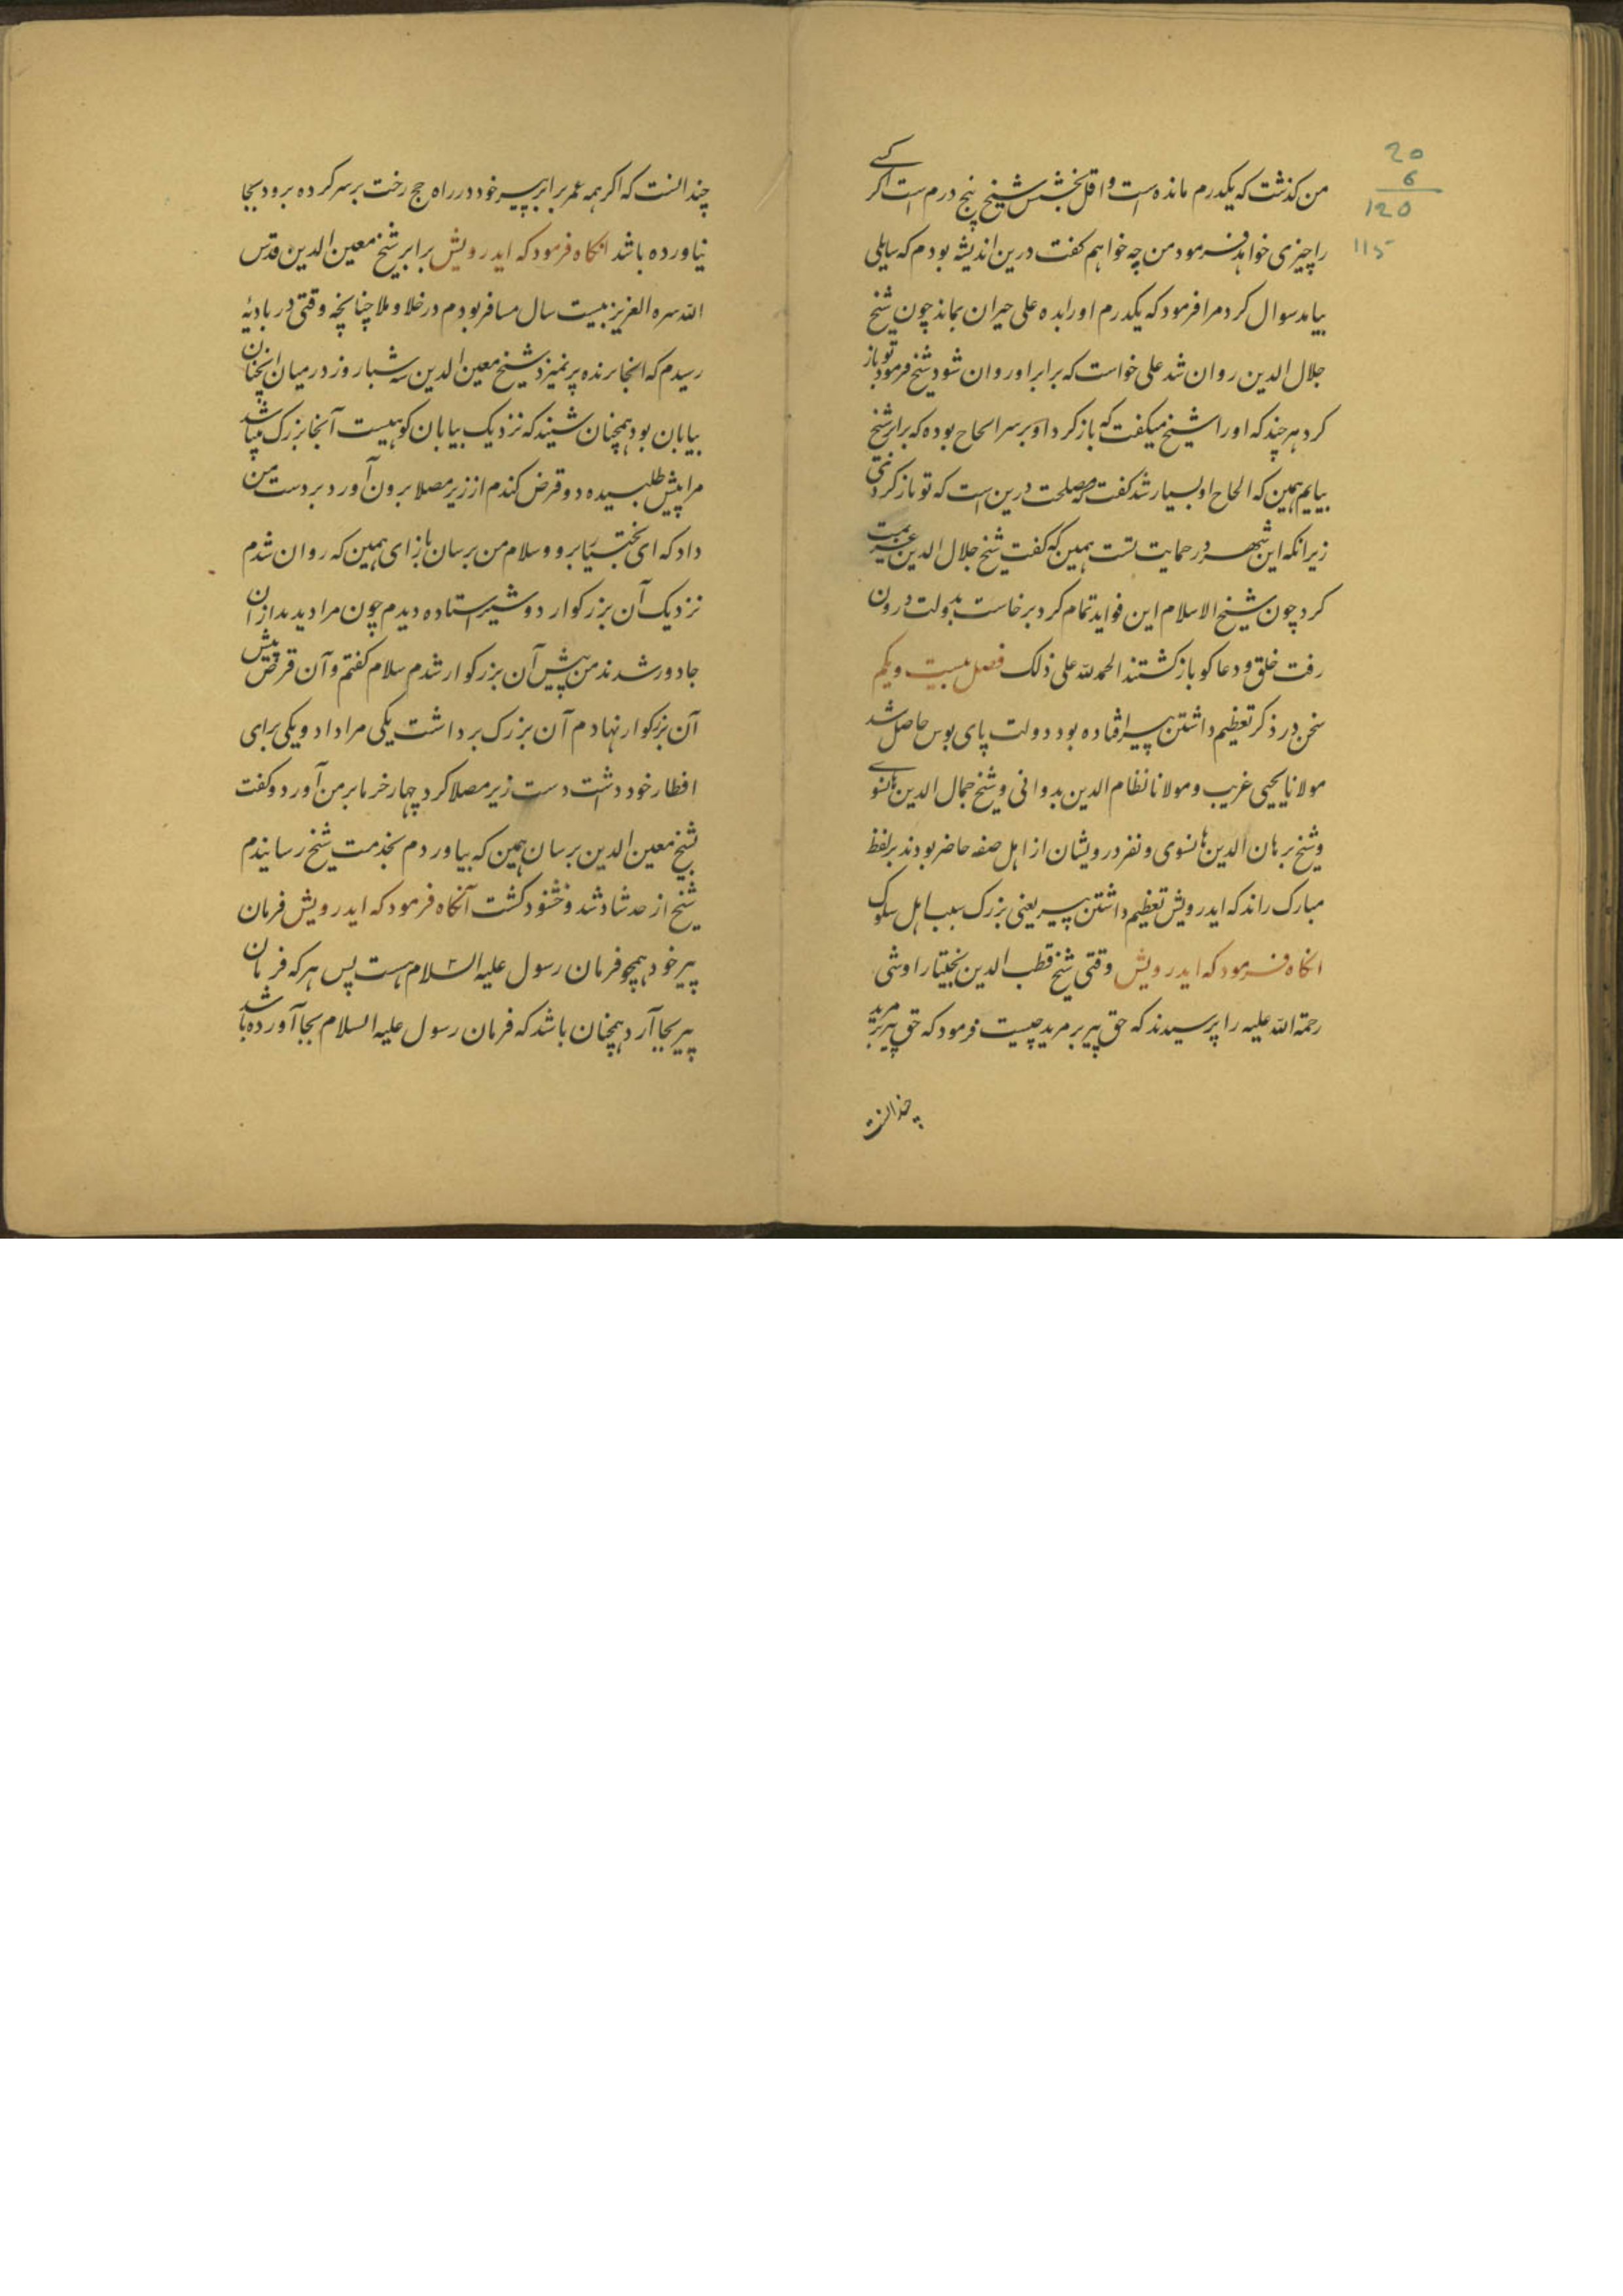 20
6
120
115
من کذشت که یکدرم مانده است و اقل بخشش شیخ پنج درم است اکر کسے
را چیزی خواهد فرمود من چه خواهم کفت درین اندیشه بودم که سایلی
بیامد سوال کرد مرا فرمود که یکدرم او را بده علی حیران بماند چون شیخ
جلال الدین روان شد علی خواست که برابر او روان شود شیخ فرمود تو باز
کرد هر چند که او را شیخ میکفت که باز کرد او بر سر الحاح بوده که برابر شیخ
بیایم همین که الحاح او بسیار شد کفت که مصلحت درین است که تو باز کردی
زیرانکه این شهر در حمایت تست همین که کفت شیخ جلال الدین عزیمت
کرد چون شیخ الاسلام این فواید تمام کرد برخاست بدولت درون
رفت خلق و دعاکو باز کشتند الحمد لله علی ذلک فصل بیست و یکم
سخن در ذکر تعظیم داشتن پیر افتاده بود دولت پای بوس حاصل شد
مولانا یحیی غریب و مولانا نظام الدین بدوانی و شیخ جمال الدین هانسوے
و شیخ برهان الدین هانسوی و نفر درویشان از اهل صفه حاضر بودند بر لفظ
مبارک راند که ایدرویش تعظیم داشتن پیر یعنی بزرک سبب اهل سلوک
انکاه فرمود که ایدرویش وقتی شیخ قطب الدین بختیار اوشی
رحمة الله علیه را پرسیدند که حق پیر بر مرید چیست فرمود که حق پیر بر مرید
چندانست
چندانست که اکر همه عمر برابر پیر خود در راه حج رخت بر سر کرده برود بجا
نیاورده باشد انکاه فرمود که ایدرویش برابر شیخ معین الدین قدس
الله سره العزیز بیست سال مسافر بودم در خلا و ملا چنانچه وقتی در بادیهٔ
رسیدم که انجا پرنده پر نمیزد شیخ معین الدین سه شبا روز در میان انچنان
بیابان بود همچنان شنیدند که نزدیک بیابان کوهیست آنجا بزرک میباشد
مرا پیش طلبیده دو قرص کندم از زیر مصلا برون آورد بر دست من
داد که ای بختیار برو و سلام من برسان باز ای همین که روان شدم
نزدیک آن بزرکوار دو شیر استاده دیدم چون مرا دیدند از آن
جا دور شدند من پیش آن بزرکوار شدم سلام کفتم و آن قرص پیش
آن بزرکوار نهادم آن بزرک برداشت یکی مرا داد و یکی برای
افطار خود داشت دست زیر مصلا کرد چهار خرما بر من آورد و کفت
بشیخ معین الدین برسان همین که بیاوردم بخدمت شیخ رسانیدم
شیخ از حد شاد شد و خشنود کشت آنکاه فرمود که ایدرویش فرمان
پیر خود همچو فرمان رسول علیه السلام هست پس هر که فرمان
پیر بجا آرد همچنان باشد که فرمان رسول علیه السلام بجا آورده باشد